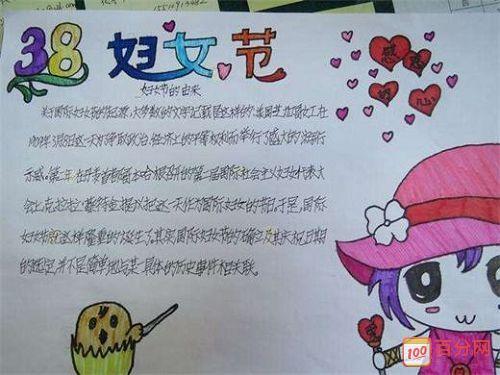 38 妇女节
感恩
的心
妇女节的由来
关于国际妇女节的起源,大多数的文字记载是这样的:美国芝加哥女工在
1909年3月8日这一天为争取政治、经济上的平等权利而举行了盛大的游行
示威。第二年在丹麦首都哥本哈根召开的第二届国际社会主义妇女代表大
会上克拉拉蔡特金提议把这一天作为国际妇女的节日,于是,国际
妇女节就这样隆重的诞生了。其实,国际妇女节的确立及其庆祝日期
的选定,并不是简单地与某一具体的历史事件相关联。
100 百分网